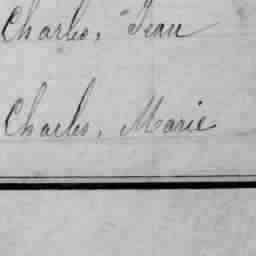 Charles, Jean
Charles, Marie